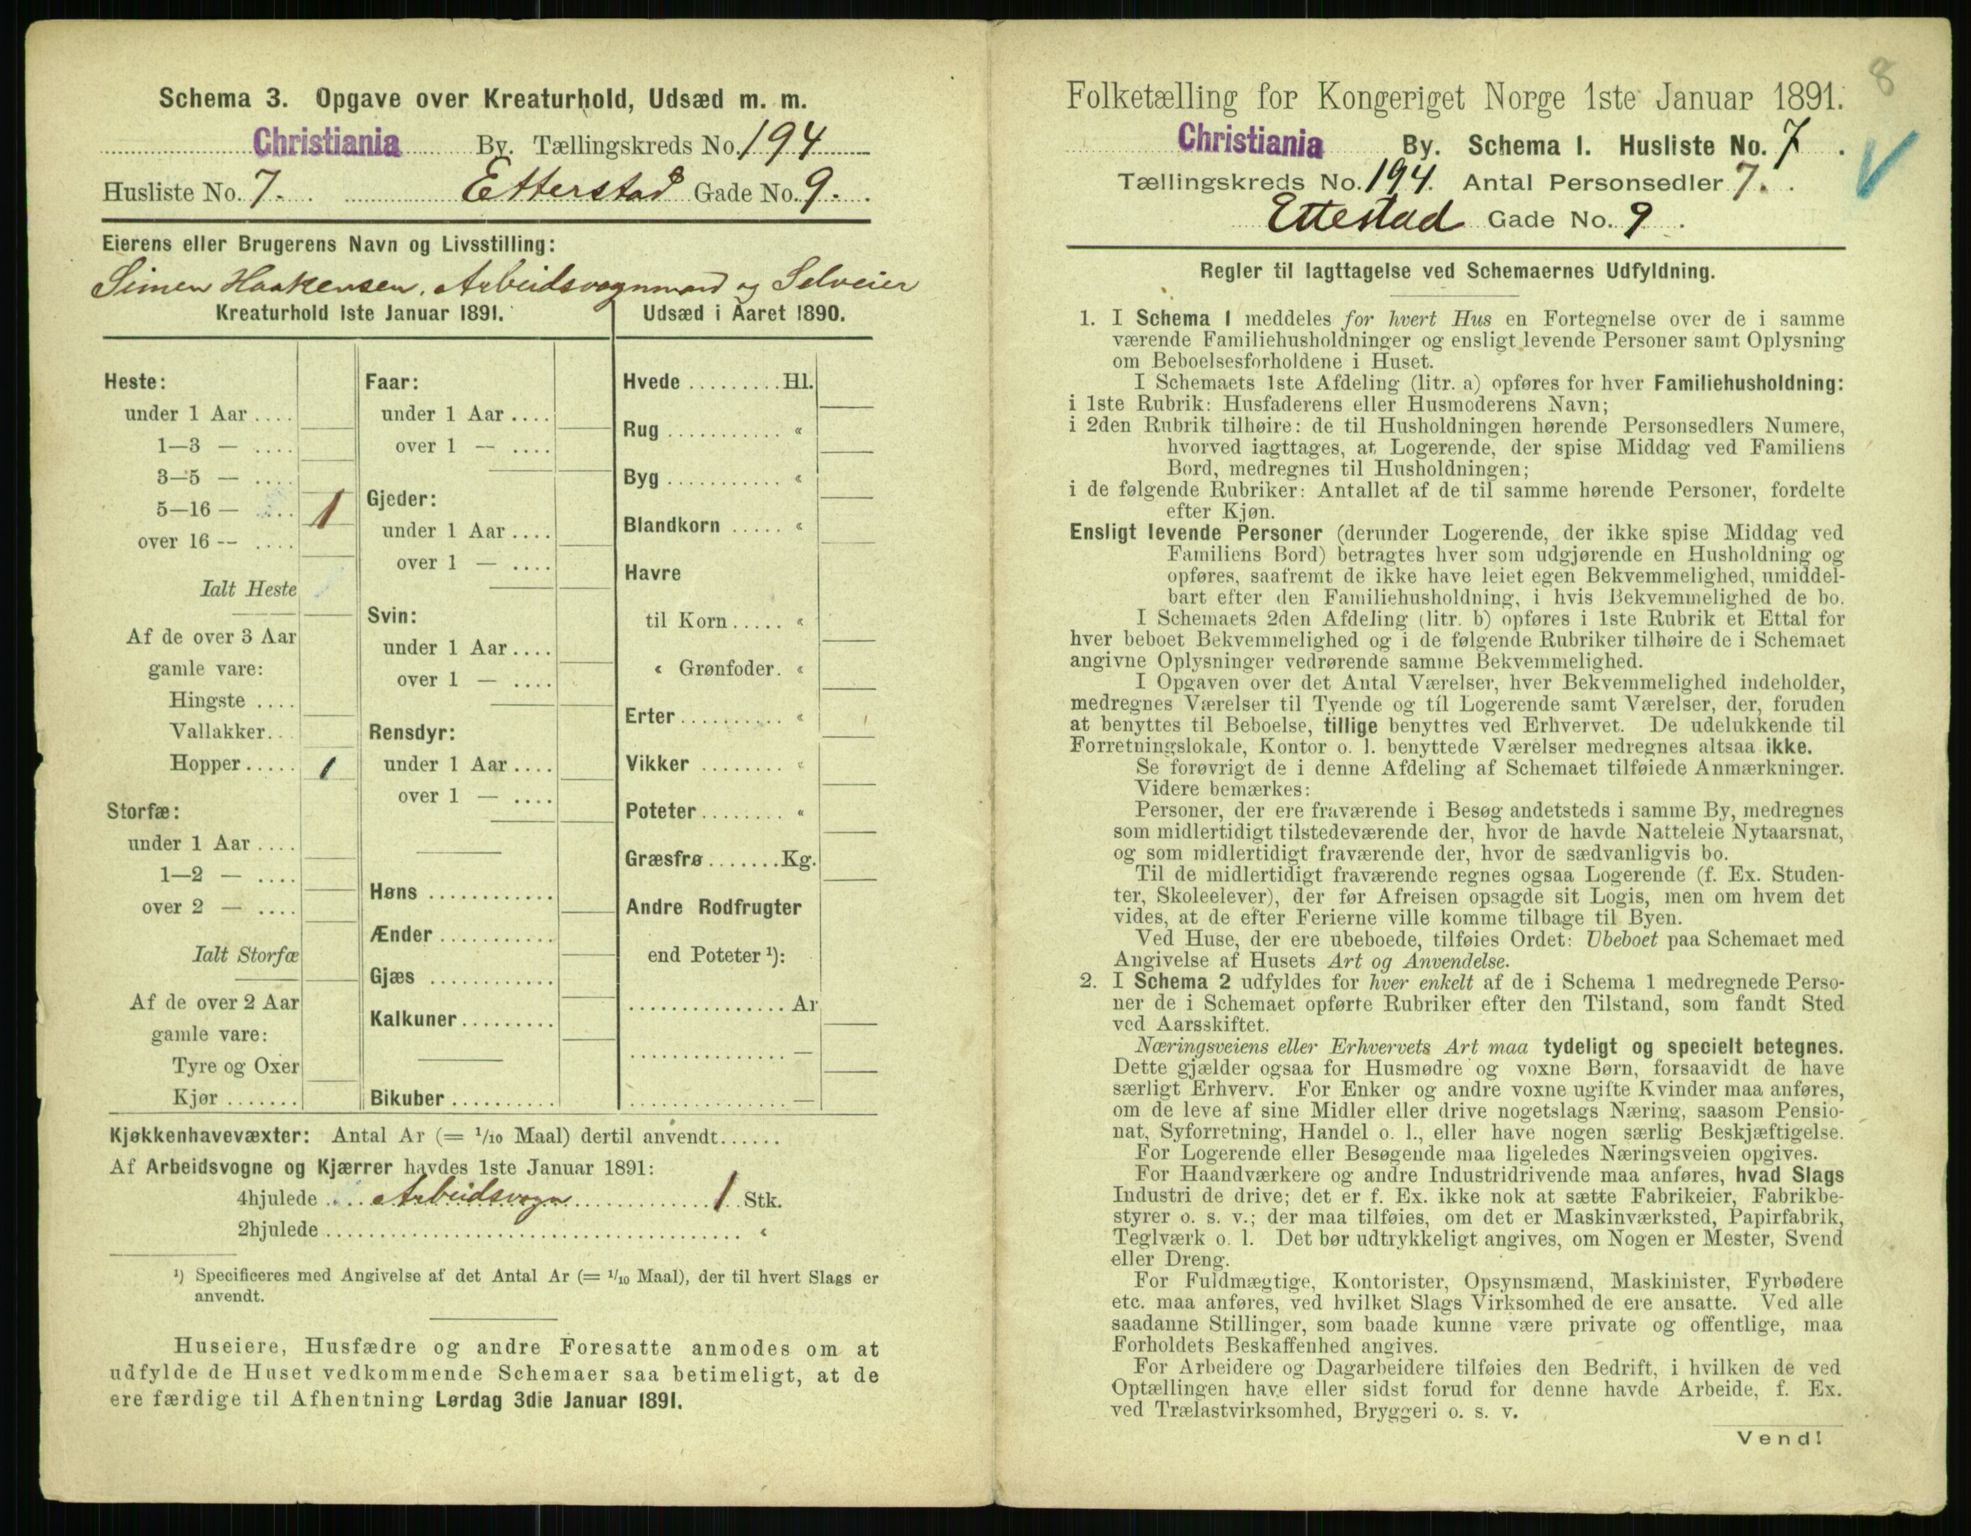 Schema 3. Opgave over Kreaturhold, Udsæd m. m.
Christiania By. Tællingskreds No. 194
Husliste No. 7. Etterstad Gade No. 9.
Eierens eller Brugerens Navn og Livsstilling:
Simen Haakensen, Arbeidsvognmand og Selveier
Kreaturhold 1ste Januar 1891.
Heste:
under 1 Aar ....
1—3 — ....
3—5 — ....
5—16 — .... 1
over 16 -- ....
Ialt Heste
Af de over 3 Aar
gamle vare:
Hingste ....
Vallakker..
Hopper ..... 1
Storfæ:
under 1 Aar ....
1—2 — ....
over 2 — ....
Ialt Storfæ
Af de over 2 Aar
gamle vare:
Tyre og Oxer
Kjør .......
Faar:
under 1 Aar ....
over 1 — ....
Gjeder:
under 1 Aar ....
over 1 — ....
Svin:
under 1 Aar ....
over 1 — ....
Rensdyr:
under 1 Aar ....
over 1 — ....
Høns ............
Ænder ...........
Gjæs ............
Kalkuner.........
Bikuber ..........
Udsæd i Aaret 1890.
Hvede ......... Hl.
Rug ........... «
Byg ........... «
Blandkorn ..... «
Havre
til Korn ..... «
« Grønfoder. «
Erter .......... «
Vikker ........ «
Poteter........ «
Græsfrø ....... Kg.
Andre Rodfrugter
end Poteter ¹):
............... Ar
............... —
............... —
Kjøkkenhavevæxter: Antal Ar (= 1/10 Maal) dertil anvendt......
Af Arbeidsvogne og Kjærrer havdes 1ste Januar 1891:
4hjulede .... Arbeidsvogn ............. 1 Stk.
2hjulede ..................................... «
¹) Specificeres med Angivelse af det Antal Ar (= 1/10 Maal), der til hvert Slags er
anvendt.
Huseiere, Husfædre og andre Foresatte anmodes om at
udfylde de Huset vedkommende Schemaer saa betimeligt, at de
ere færdige til Afhentning Lørdag 3die Januar 1891.
8
Folketælling for Kongeriget Norge 1ste Januar 1891.
Christiania By. Schema 1. Husliste No. 7.
Tællingskreds No. 194. Antal Personsedler 7.
Ettestad Gade No. 9.
Regler til Iagttagelse ved Schemaernes Udfyldning.
1. I Schema 1 meddeles for hvert Hus en Fortegnelse over de i samme
værende Familiehusholdninger og ensligt levende Personer samt Oplysning
om Beboelsesforholdene i Huset.
I Schemaets 1ste Afdeling (litr. a) opføres for hver Familiehusholdning:
i 1ste Rubrik: Husfaderens eller Husmoderens Navn;
i 2den Rubrik tilhøire: de til Husholdningen hørende Personsedlers Numere,
hvorved iagttages, at Logerende, der spise Middag ved Familiens
Bord, medregnes til Husholdningen;
i de følgende Rubriker: Antallet af de til samme hørende Personer, fordelte
efter Kjøn.
Ensligt levende Personer (derunder Logerende, der ikke spise Middag ved
Familiens Bord) betragtes hver som udgjørende en Husholdning og
opføres, saafremt de ikke have leiet egen Bekvemmelighed, umiddel-
bart efter den Familiehusholdning, i hvis Bekvemmelighed de bo.
I Schemaets 2den Afdeling (litr. b) opføres i 1ste Rubrik et Ettal for
hver beboet Bekvemmelighed og i de følgende Rubriker tilhøire de i Schemaet
angivne Oplysninger vedrørende samme Bekvemmelighed.
I Opgaven over det Antal Værelser, hver Bekvemmelighed indeholder,
medregnes Værelser til Tyende og til Logerende samt Værelser, der, foruden
at benyttes til Beboelse, tillige benyttes ved Erhvervet. De udelukkende til
Forretningslokale, Kontor o. l. benyttede Værelser medregnes altsaa ikke.
Se forøvrigt de i denne Afdeling af Schemaet tilføiede Anmærkninger.
Videre bemærkes:
Personer, der ere fraværende i Besøg andetsteds i samme By, medregnes
som midlertidigt tilstedeværende der, hvor de havde Natteleie Nytaarsnat,
og som midlertidigt fraværende der, hvor de sædvanligvis bo.
Til de midlertidigt fraværende regnes ogsaa Logerende (f. Ex. Studen-
ter, Skoleelever), der før Afreisen opsagde sit Logis, men om hvem det
vides, at de efter Ferierne ville komme tilbage til Byen.
Ved Huse, der ere ubeboede, tilføies Ordet: Ubeboet paa Schemaet med
Angivelse af Husets Art og Anvendelse.
2. I Schema 2 udfyldes for hver enkelt af de i Schema 1 medregnede Perso-
ner de i Schemaet opførte Rubriker efter den Tilstand, som fandt Sted
ved Aarsskiftet.
Næringsveiens eller Erhvervets Art maa tydeligt og specielt betegnes.
Dette gjælder ogsaa for Husmødre og voxne Børn, forsaavidt de have
særligt Erhverv. For Enker og andre voxne ugifte Kvinder maa anføres,
om de leve af sine Midler eller drive nogetslags Næring, saasom Pensio-
nat, Syforretning, Handel o. l., eller have nogen særlig Beskjæftigelse.
For Logerende eller Besøgende maa ligeledes Næringsveien opgives.
For Haandværkere og andre Industridrivende maa anføres, hvad Slags
Industri de drive; det er f. Ex. ikke nok at sætte Fabrikeier, Fabrikbe-
styrer o. s. v.; der maa tilføies, om det er Maskinværksted, Papirfabrik,
Teglværk o. l. Det bør udtrykkeligt angives, om Nogen er Mester, Svend
eller Dreng.
For Fuldmægtige, Kontorister, Opsynsmænd, Maskinister, Fyrbødere
etc. maa anføres, ved hvilket Slags Virksomhed de ere ansatte. Ved alle
saadanne Stillinger, som baade kunne være private og offentlige, maa
Forholdets Beskaffenhed angives.
For Arbeidere og Dagarbeidere tilføies den Bedrift, i hvilken de ved
Optællingen have eller sidst forud for denne havde Arbeide, f. Ex.
ved Trælastvirksomhed, Bryggeri o. s. v.
Vend!